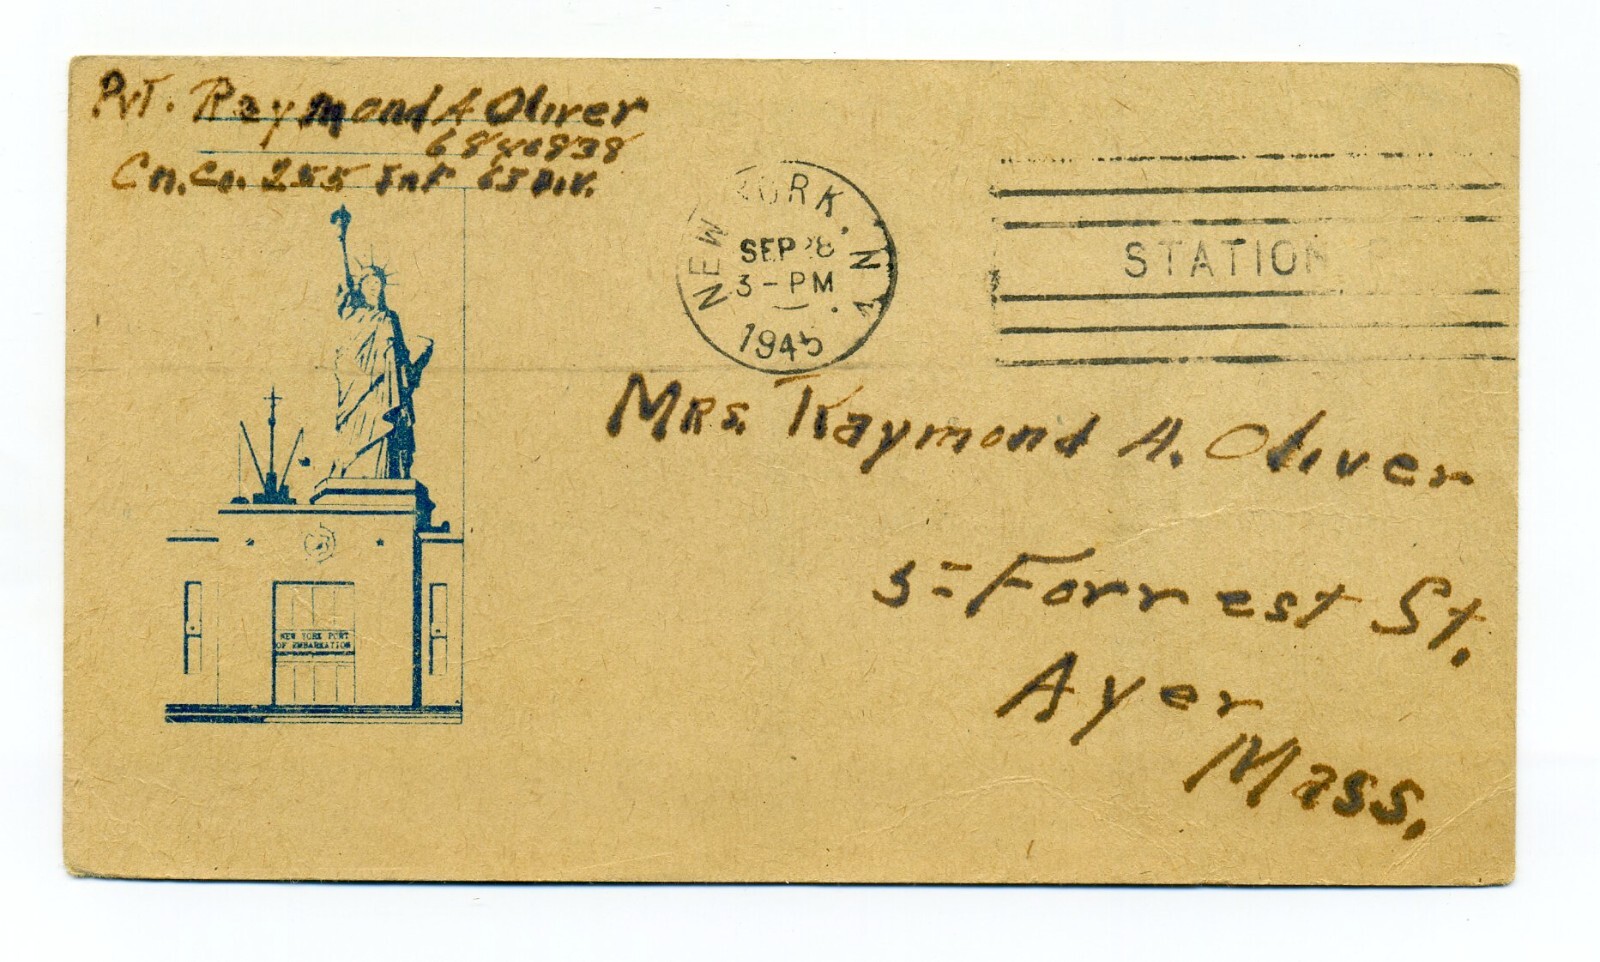 Pvt. Raymond A Oliver
6840838
Cn. Co. 255 Inf 65 Div.
NEW YORK, N.Y.
SEP 28
3 - PM
1945
STATION
Mrs. Raymond A. Oliver
5 = Forrest St.
Ayer
Mass.
NEW YORK PORT
OF EMBARKATION